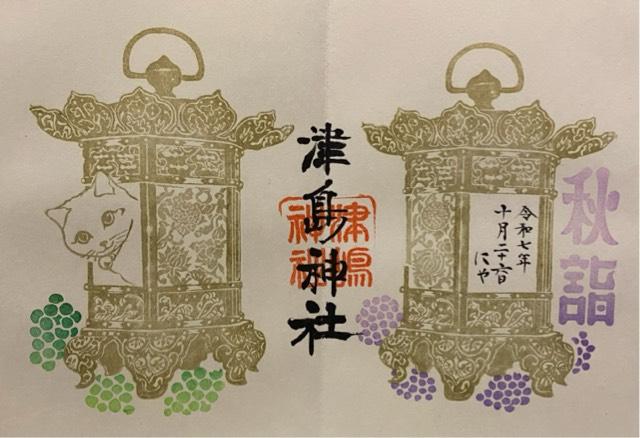 秋詣
令和七年
十月二十六日
にゃ
津島神社
津嶋
神社